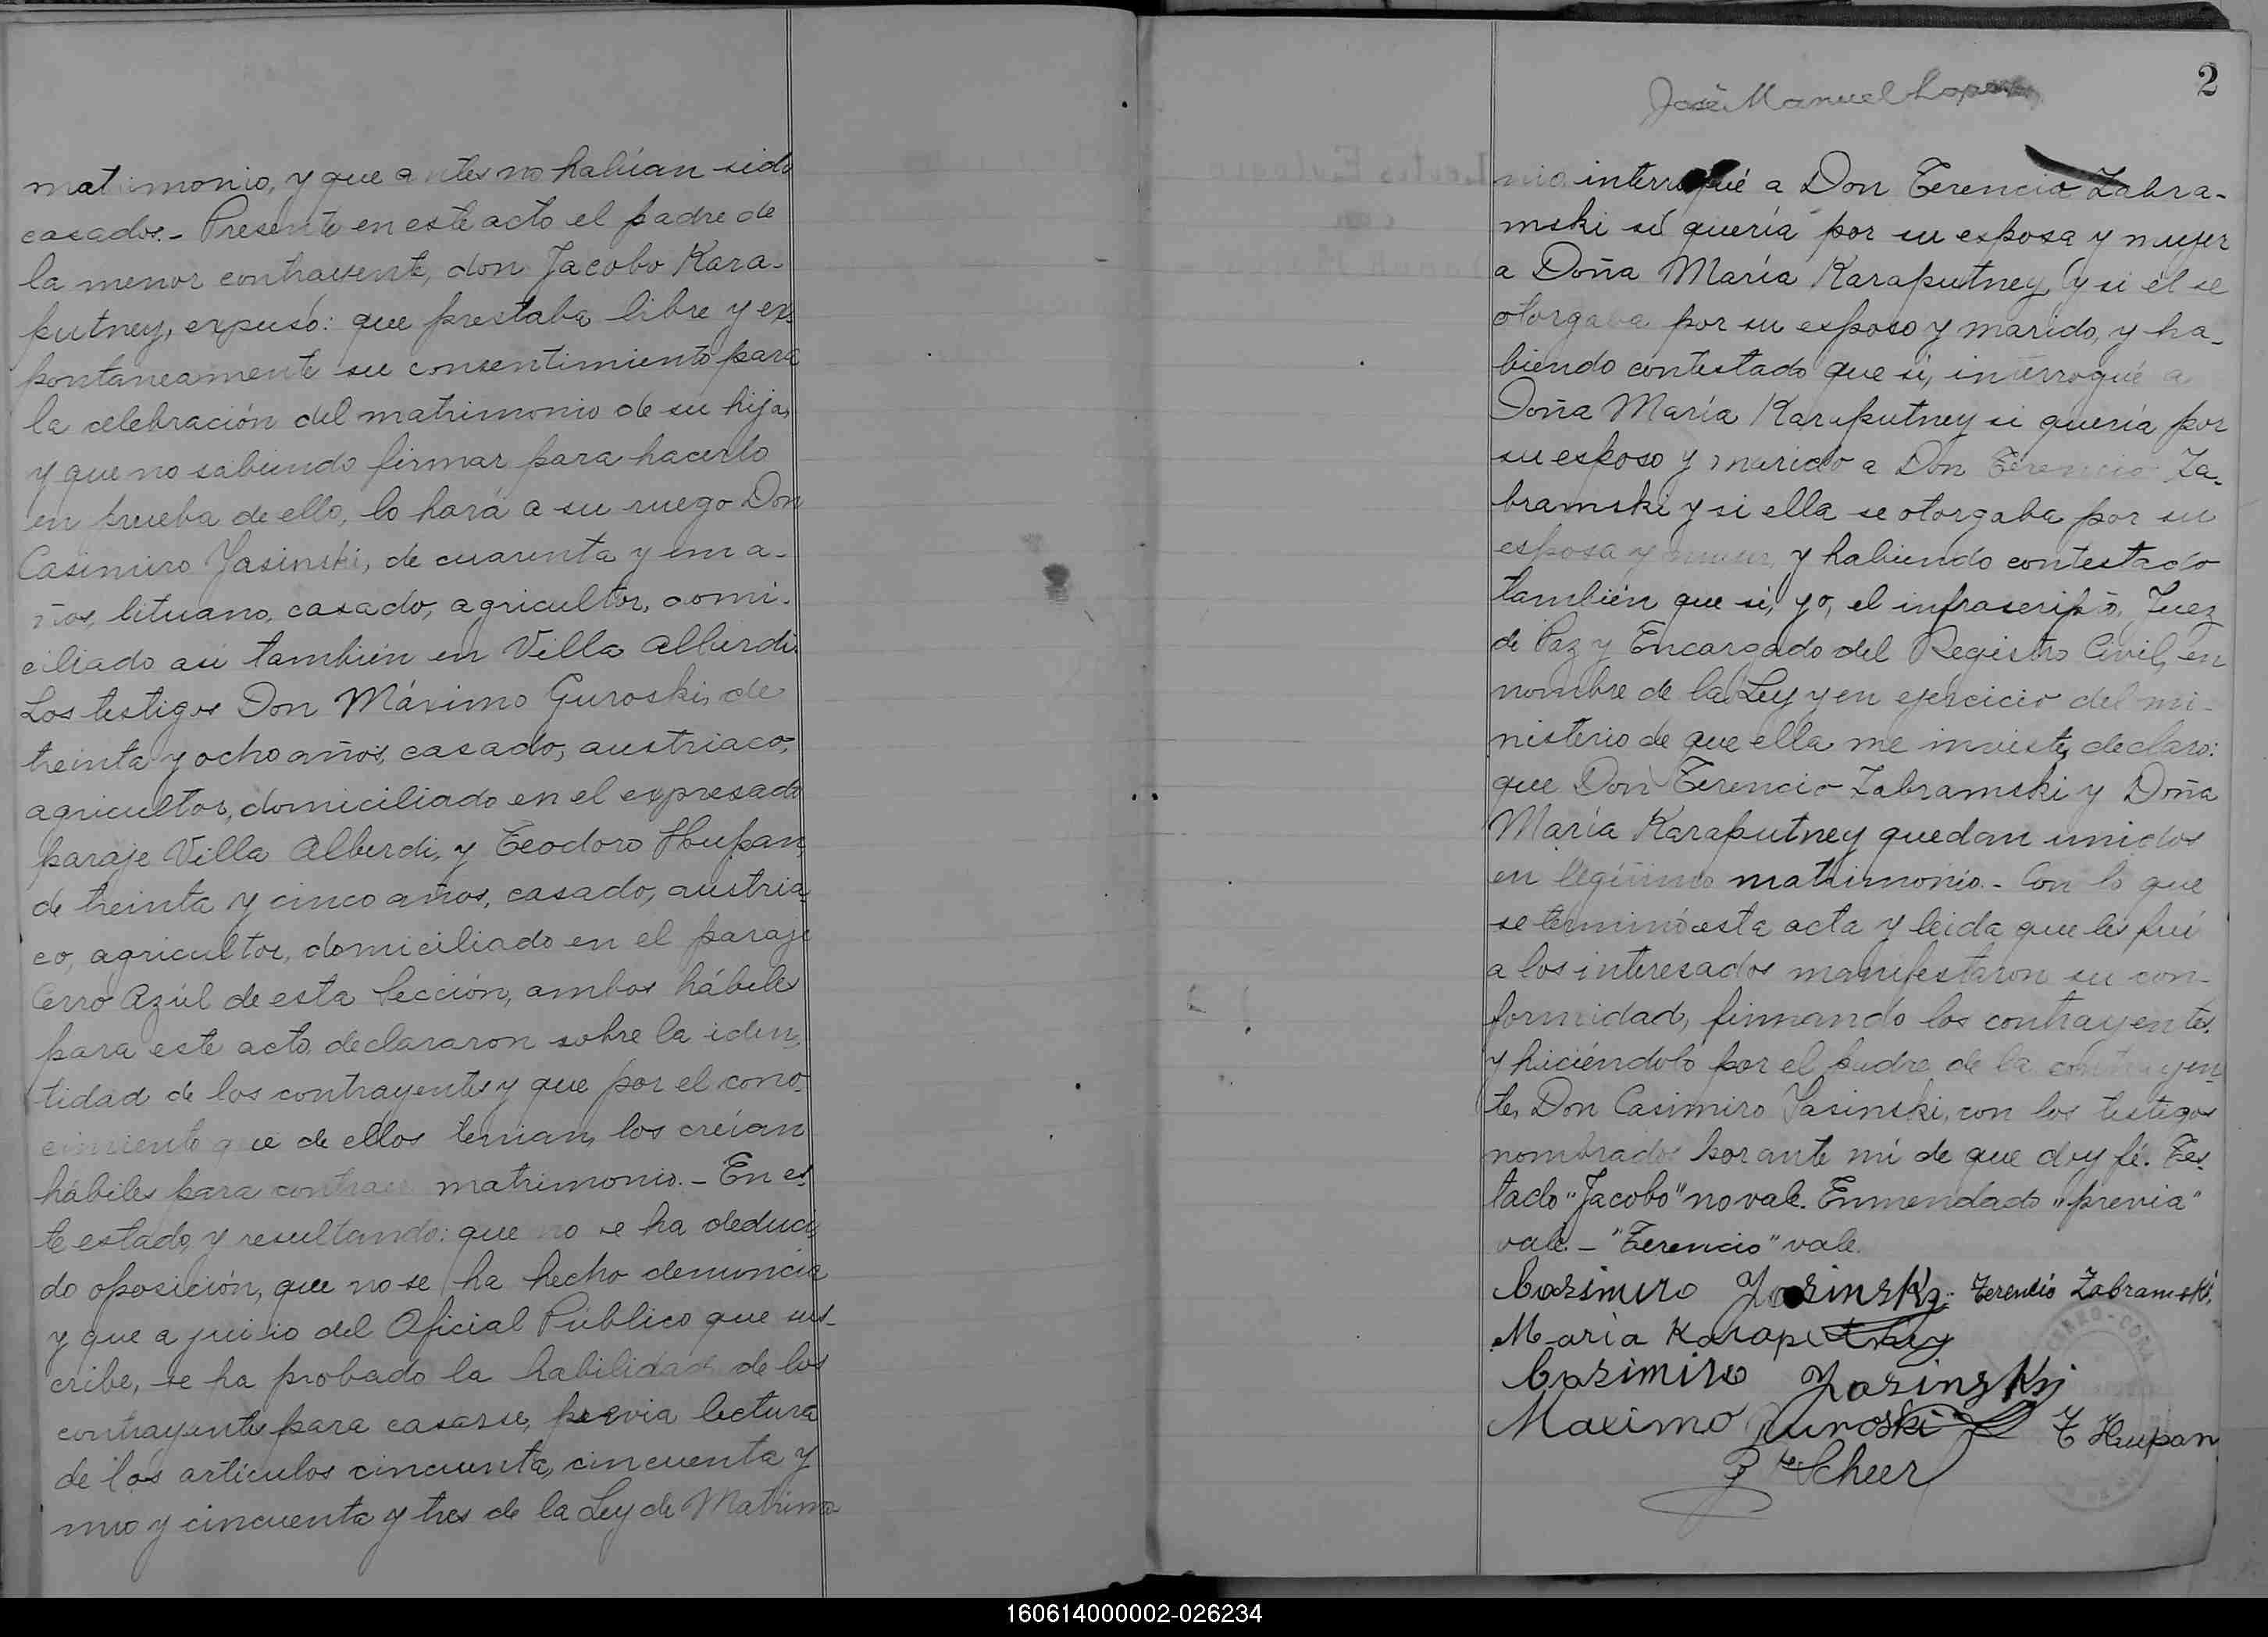 matrimonio, y que antes no habían sido
casados.- Presente en este acto el padre de
la menor contrayente, don Jacobo Kara-
putney, expuso: que prestaba libre y es-
pontaneamente su consentimiento para
la celebración del matrimonio de su hija,
y que no sabiendo firmar para hacerlo
en prueba de ello, lo hará a su ruego Don
Casimiro Yasinski, de cuarenta y un a-
ños, lituano, casado, agricultor, domi-
ciliado asi también en Villa Alberdi.
Los testigos Don Máximo Guroski, de
treinta y ocho años, casado, austriaco,
agricultor, domiciliado en el expresado
paraje Villa Alberdi, y Teodoro Hupan,
de treinta y cinco años, casado, austria-
co, agricultor, domiciliado en el paraje
Cerro Azúl de esta Sección, ambos hábiles
para este acto, declararon sobre la iden-
tidad de los contrayentes y que por el cono-
cimiento que de ellos tenian, los creían
hábiles para contraer matrimonio.- En es-
te estado, y resultando: que no se ha deduci-
do oposición, que no se ha hecho denuncia
y que a juicio del Oficial Público que sus-
cribe, se ha probado la habilidad de los
contrayentes para casarse, previa lectura
de los artículos cincuenta, cincuenta y
uno y cincuenta y tres de la Ley de Matrimo-
José Manuel
2
nio interrogué a Don Terencio Zabra-
mski si quería por su esposa y mujer
a Doña María Karaputney, y si él se
otorgaba por su esposo y marido, y ha-
biendo contestado que si, interrogué a
Doña María Karaputney si quería por
su esposo y marido a Don Terencio Za-
bramski y si ella se otorgaba por su
esposa y mujer, y habiendo contestado
también que si, yo, el infrascripto, Juez
de Paz y Encargado del Registro Civil, en
nombre de la Ley y en ejercicio del mi-
nisterio de que ella me inviste, declaro:
que Don Terencio Zabramski y Doña
María Karaputney quedan unidos
en legítimo matrimonio.- Con lo que
se terminó esta acta y leida que les fué
a los interesados manifestaron su con-
formidad, firmando los contrayentes,
y haciéndolo por el padre de la contrayen-
te, Don Casimiro Yasinski, con los testigos
nombrados por ante mí de que doy fé. Tes-
tado "Jacobo" no vale. Enmendado "previa"
vale.- "Terencio" vale.
Casimiro Yasinski Terencio Zabramski
Maria Karapitney
Casimiro Yasinski
Maximo Guroski T Hupan
Scheer
160614000002-026234